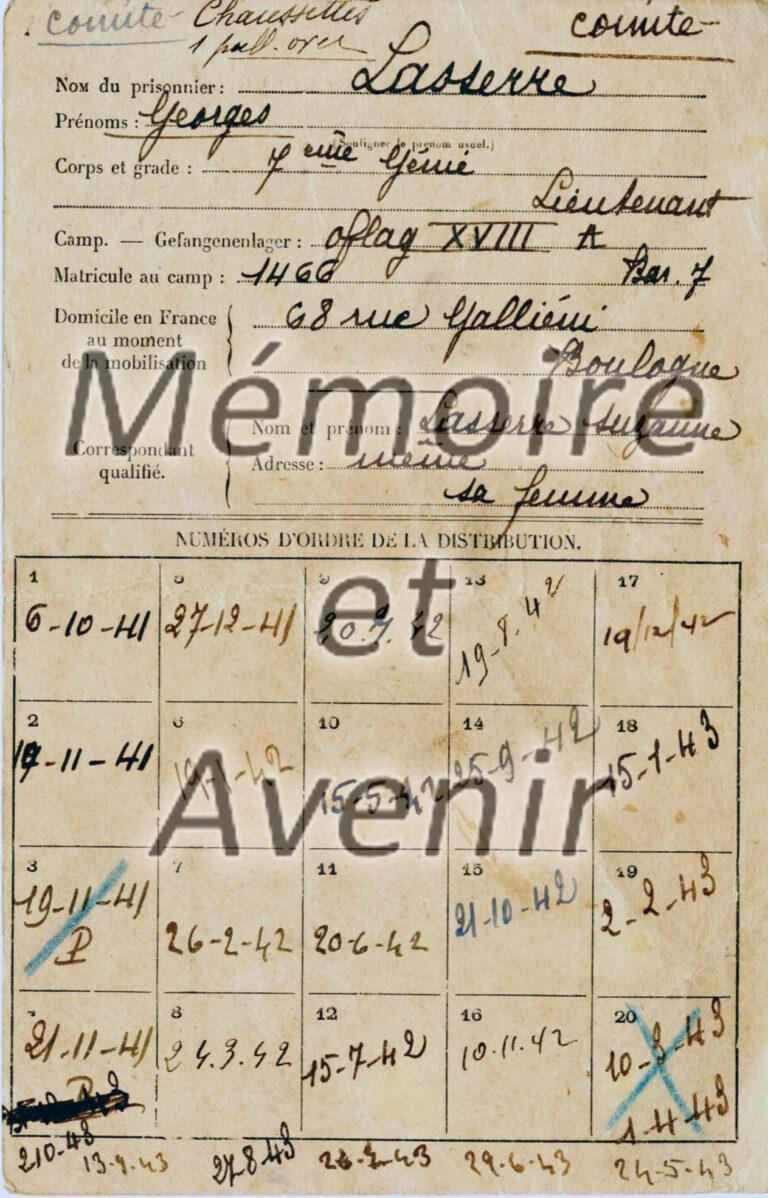 comité Chaussettes comité
1 pull-over
Nom du prisonnier : Lasserre
Prénoms : Georges
(Souligner le prénom usuel.)
Corps et grade : 7eme Génie
Lieutenant
Camp. — Gefangenenlager : oflag XVIII A
Matricule au camp : 1466 Bar. 7
Domicile en France au moment de la mobilisation
68 rue Galliéni
Boulogne
Correspondant qualifié.
Nom et prénom : Lasserre Suzanne
Adresse : même
sa femme
Mémoire
et
Avenir
NUMÉROS D'ORDRE DE LA DISTRIBUTION.
1 5 9 13 17
6-10-41 27-12-41 19-8-42 19/12/42
2 6 10 14 18
11-41 19-1-42 15-5-42 25-9-42 15-1-43
3 7 11 15 19
19-11-41 26-2-42 20-6-42 21-10-42 2-2-43
P
8 12 16 20
21-11-41 24.3.42 15-7-42 10.11.42 10-3-43
P 1-4-43
210-43 13-9-43 27-8-43 29-6-43 24-5-43